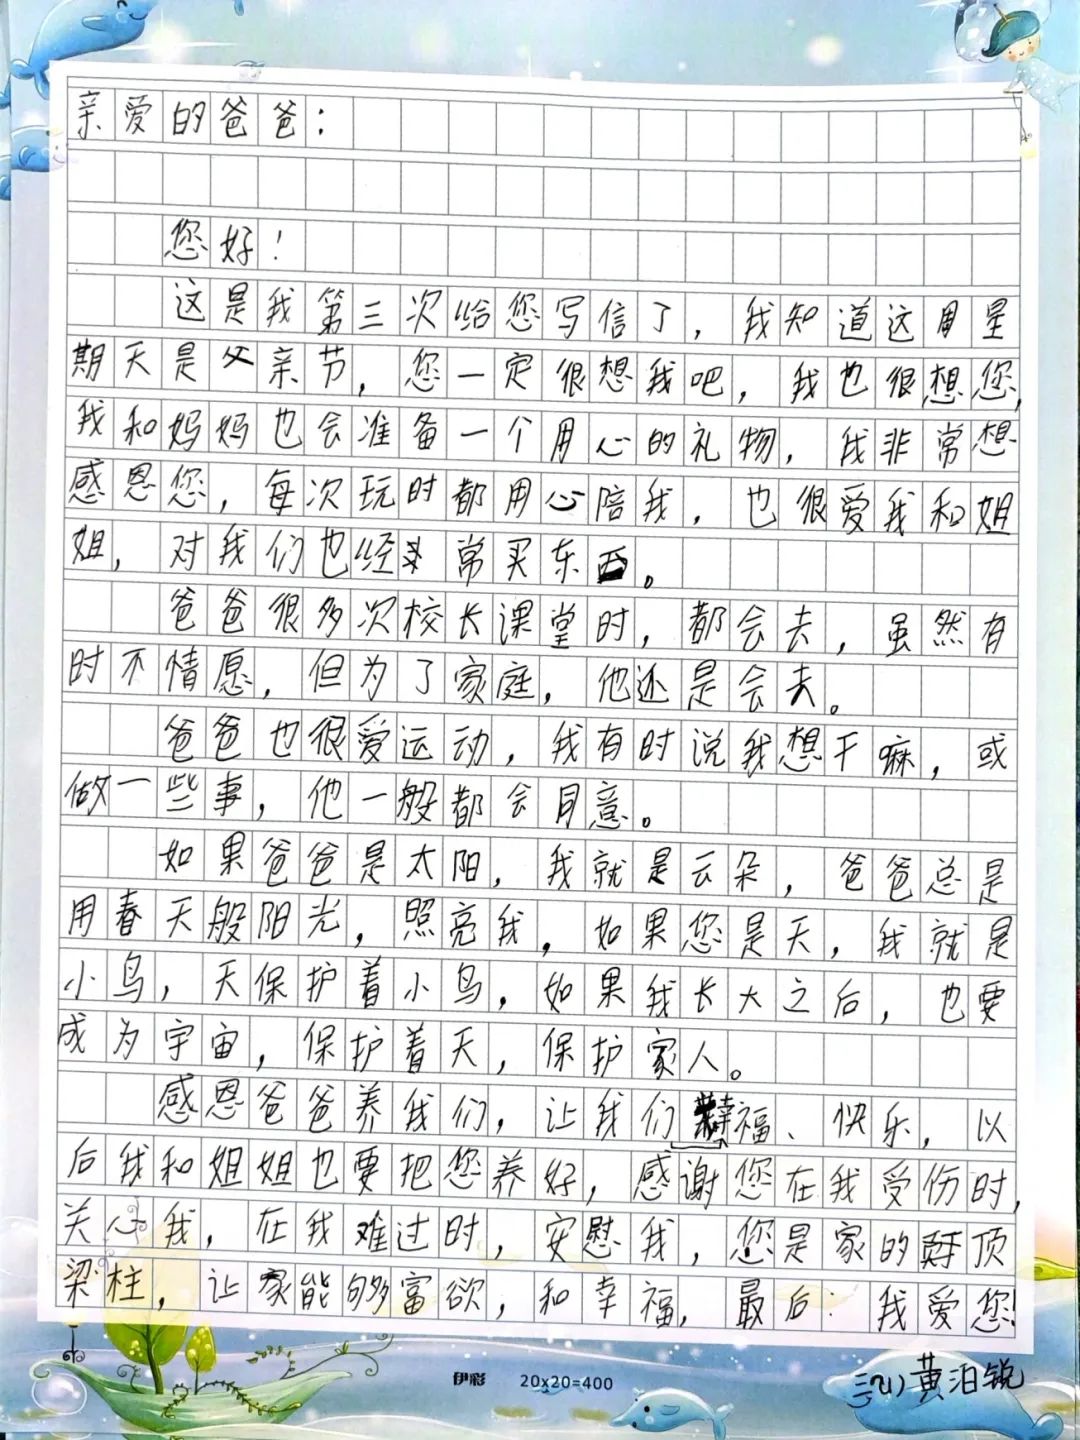 亲爱的爸爸：
您好！
这是我第三次给您写信了，我知道这周星
期天是父亲节，您一定很想我吧，我也很想您，
我和妈妈也会准备一个用心的礼物，我非常想
感恩您，每次玩时都用心陪我，也很爱我和姐
姐，对我们也经常买东西。
爸爸很多次校长课堂时，都会去，虽然有
时不情愿，但为了家庭，他还是会去。
爸爸也很爱运动，我有时说我想干嘛，或
做一些事，他一般都会同意。
如果爸爸是太阳，我就是云朵，爸爸总是
用春天般阳光，照亮我，如果您是天，我就是
小鸟，天保护着小鸟，如果我长大之后，也要
成为宇宙，保护着天，保护家人。
感恩爸爸养我们，让我们幸福、快乐，以
后我和姐姐也要把您养好，感谢您在我受伤时，
关心我，在我难过时，安慰我，您是家的顶
梁柱，让家能够富欲，和幸福，最后：我爱您！
伊彩 20x20=400
黄泊锐